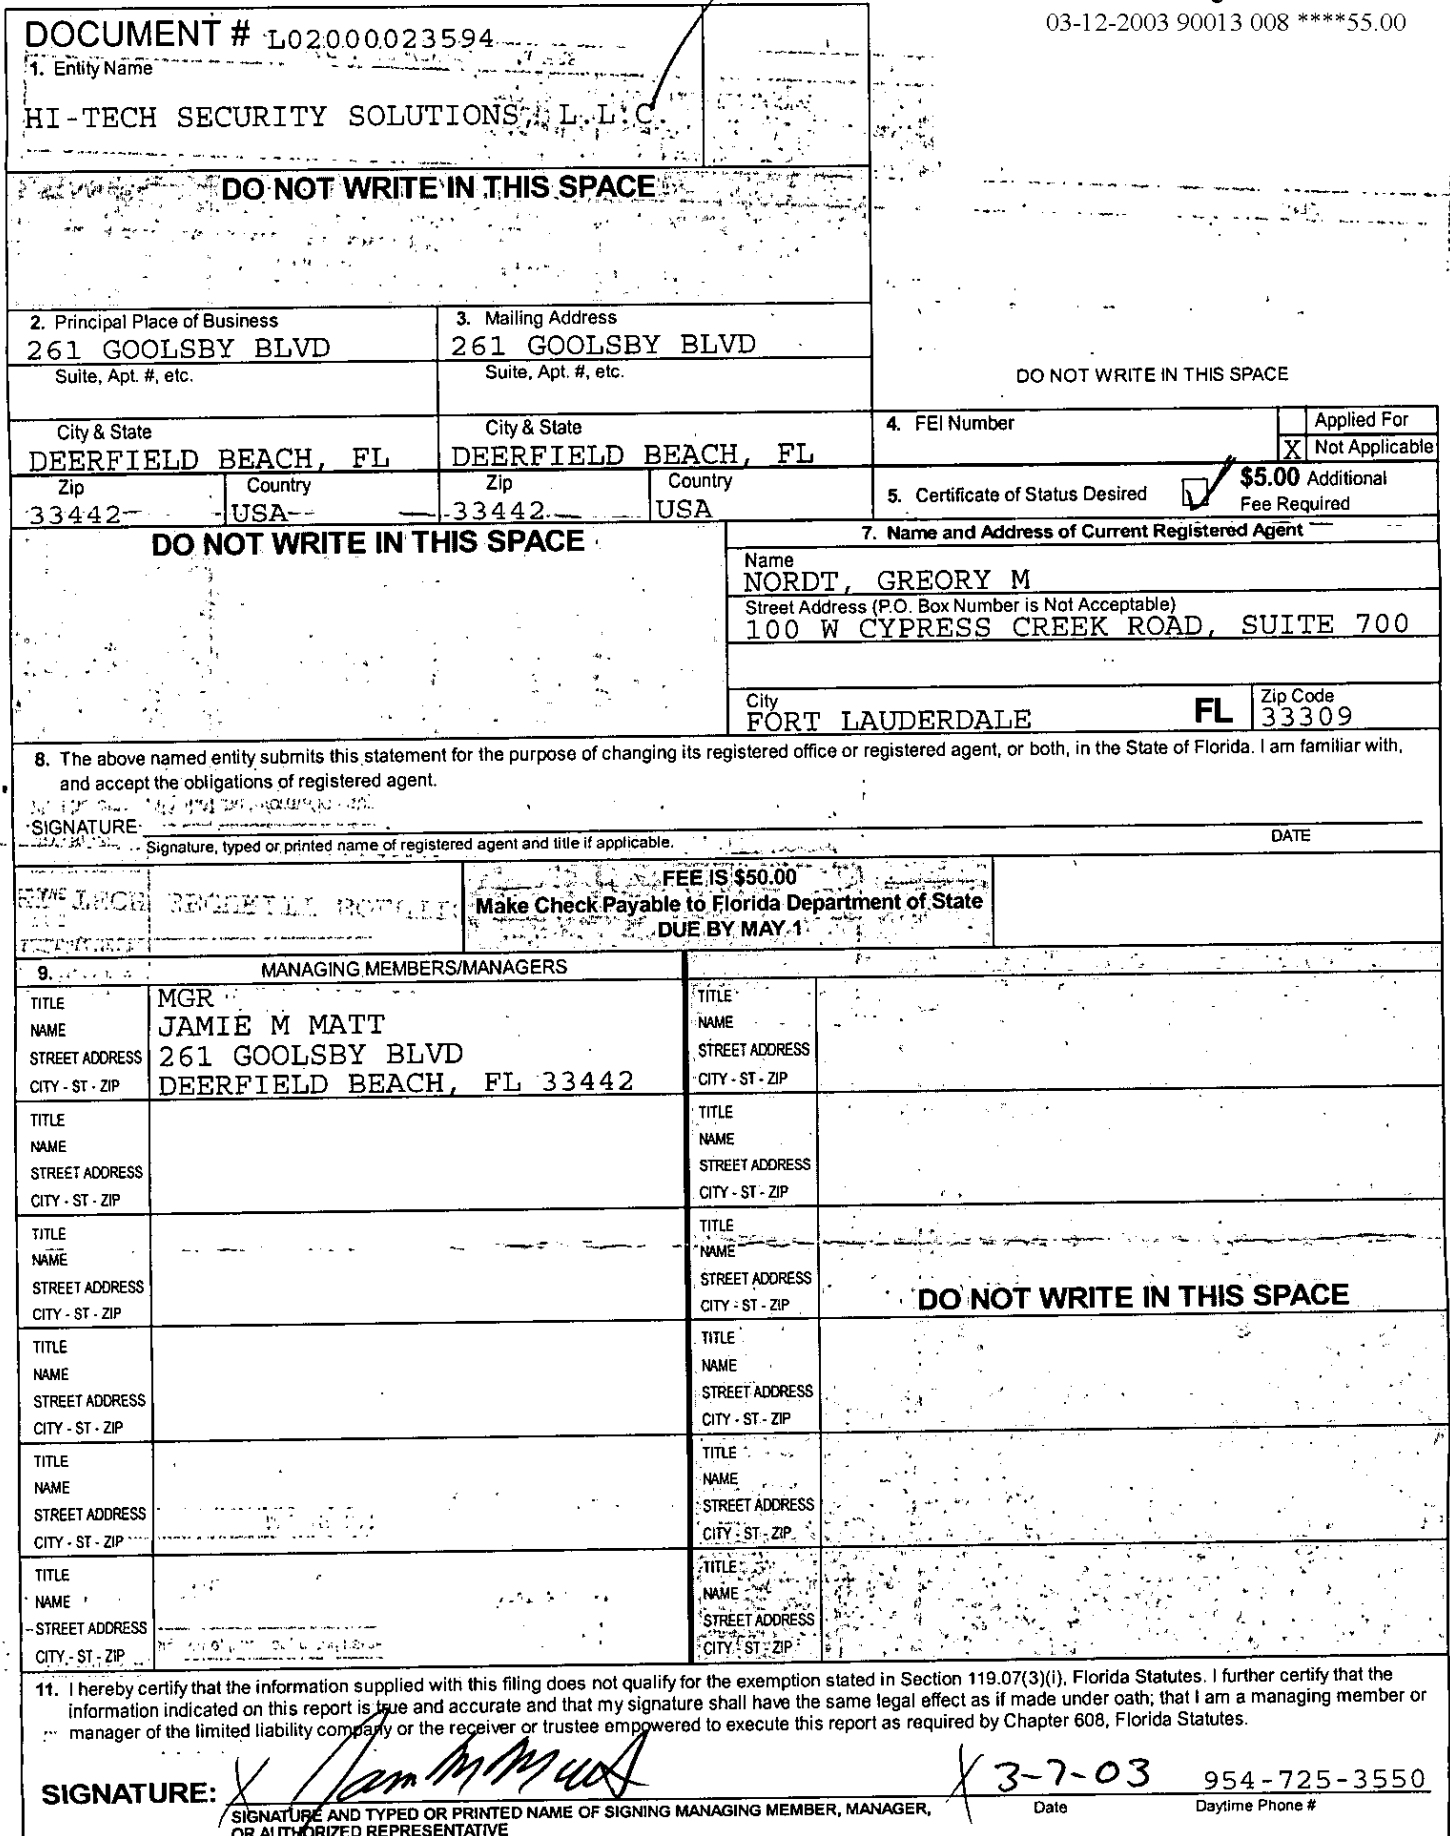 03-12-2003 90013 008 ****55.00
DOCUMENT # L02000023594
1. Entity Name
HI-TECH SECURITY SOLUTIONS, L.L.C.
DO NOT WRITE IN THIS SPACE
2. Principal Place of Business
261 GOOLSBY BLVD
Suite, Apt. #, etc.
3. Mailing Address
261 GOOLSBY BLVD
Suite, Apt. #, etc.
DO NOT WRITE IN THIS SPACE
City & State
DEERFIELD BEACH, FL
City & State
DEERFIELD BEACH, FL
4. FEI Number
Applied For
X Not Applicable
Zip
33442
Country
USA
Zip
33442
Country
USA
5. Certificate of Status Desired
$5.00 Additional
Fee Required
DO NOT WRITE IN THIS SPACE
7. Name and Address of Current Registered Agent
Name
NORDT, GREORY M
Street Address (P.O. Box Number is Not Acceptable)
100 W CYPRESS CREEK ROAD, SUITE 700
City
FORT LAUDERDALE
FL
Zip Code
33309
8. The above named entity submits this statement for the purpose of changing its registered office or registered agent, or both, in the State of Florida. I am familiar with,
and accept the obligations of registered agent.
SIGNATURE
Signature, typed or printed name of registered agent and title if applicable.
DATE
FEE IS $50.00
Make Check Payable to Florida Department of State
DUE BY MAY 1
9.
MANAGING MEMBERS/MANAGERS
TITLE MGR
NAME JAMIE M MATT
STREET ADDRESS 261 GOOLSBY BLVD
CITY - ST - ZIP DEERFIELD BEACH, FL 33442
TITLE
NAME
STREET ADDRESS
CITY - ST - ZIP
TITLE
NAME
STREET ADDRESS
CITY - ST - ZIP
TITLE
NAME
STREET ADDRESS
CITY - ST - ZIP
TITLE
NAME
STREET ADDRESS
CITY - ST - ZIP
TITLE
NAME
STREET ADDRESS
CITY - ST - ZIP
TITLE
NAME
STREET ADDRESS
CITY - ST - ZIP
TITLE
NAME
STREET ADDRESS
CITY - ST - ZIP
TITLE
NAME
STREET ADDRESS
CITY - ST - ZIP
DO NOT WRITE IN THIS SPACE
TITLE
NAME
STREET ADDRESS
CITY - ST - ZIP
TITLE
NAME
STREET ADDRESS
CITY - ST - ZIP
TITLE
NAME
STREET ADDRESS
CITY - ST - ZIP
11. I hereby certify that the information supplied with this filing does not qualify for the exemption stated in Section 119.07(3)(i), Florida Statutes. I further certify that the
information indicated on this report is true and accurate and that my signature shall have the same legal effect as if made under oath; that I am a managing member or
manager of the limited liability company or the receiver or trustee empowered to execute this report as required by Chapter 608, Florida Statutes.
SIGNATURE:
X
X 3-7-03
954-725-3550
SIGNATURE AND TYPED OR PRINTED NAME OF SIGNING MANAGING MEMBER, MANAGER,
OR AUTHORIZED REPRESENTATIVE
Date
Daytime Phone #